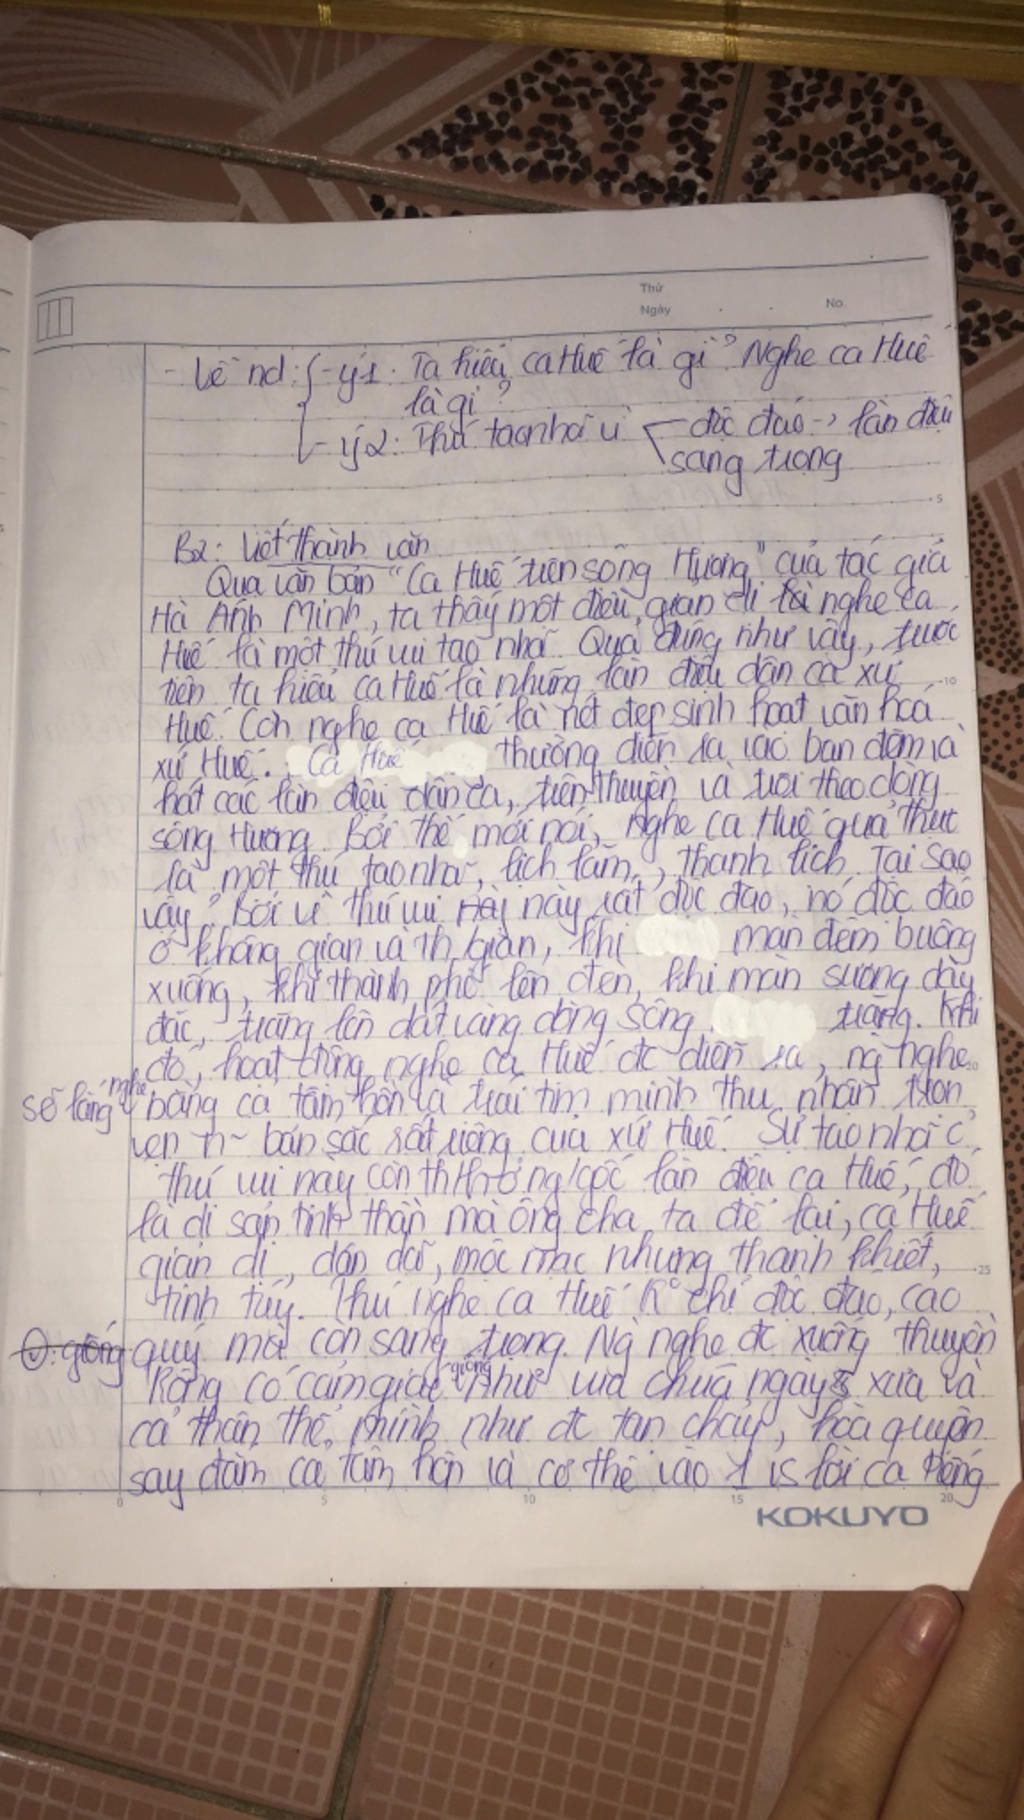 Thứ
Ngày . . No.
- Về nd: - ý1: Ta hiểu ca Huế là gì? Nghe ca Huế
là gì?
- ý2: Thú tao nhã vì độc đáo -> làn điệu
sang trọng
5
B2: Viết thành văn
Qua văn bản "Ca Huế trên sông Hương" của tác giả
Hà Ánh Minh, ta thấy một điều giản dị là nghe ca
Huế là một thú vui tao nhã. Quả đúng như vậy, trước
tiên ta hiểu ca Huế là những làn điệu dân ca xứ
10
Huế. Còn nghe ca Huế là nét đẹp sinh hoạt văn hoá
xứ Huế. Ca Huế thường diễn ra vào ban đêm và
hát các làn điệu dân ca, trên thuyền và trôi theo dòng
sông Hương. Bởi thế mới nói, nghe ca Huế quả thực
là một thú tao nhã, lịch lãm, thanh lịch. Tại sao
vậy? Bởi vì thú vui này rất độc đáo, nó độc đáo
ở không gian và th.gian, khi màn đêm buông
xuống, khi thành phố lên đèn, khi màn sương dày
đặc, trăng lên dát vàng dòng sông trăng. Khi
đó, hoạt động nghe ca Huế đc diễn ra, ng nghe
20
sẽ lắng nghe bằng cả tâm hồn và trái tim mình thu nhận trọn
vẹn n~ bản sắc rất riêng của xứ Huế. Sự tao nhã c̉
thú vui này còn th làn điệu ca Huế, đó
là di sản tinh thần mà ông cha ta để lại, ca Huế
giản dị, dân dã, mộc mạc nhưng thanh khiết,
25
tinh túy. Thú nghe ca Huế K° chỉ độc đáo, cao
giống quý mà còn sang trọng. Ng nghe đc xuống thuyền
Rồng có cảm giác giống như vua chúa ngày xưa và
cả thân thể mình như đc tan chảy, hòa quyện
say đắm cả tâm hồn và cơ thể vào lời ca tiếng
0 5 10 15 20
KOKUYO